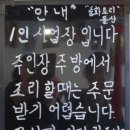 "안내"
1인 사업장 입니다
주인장 주방에서
조리할때는 주문
받기 어렵습니다.